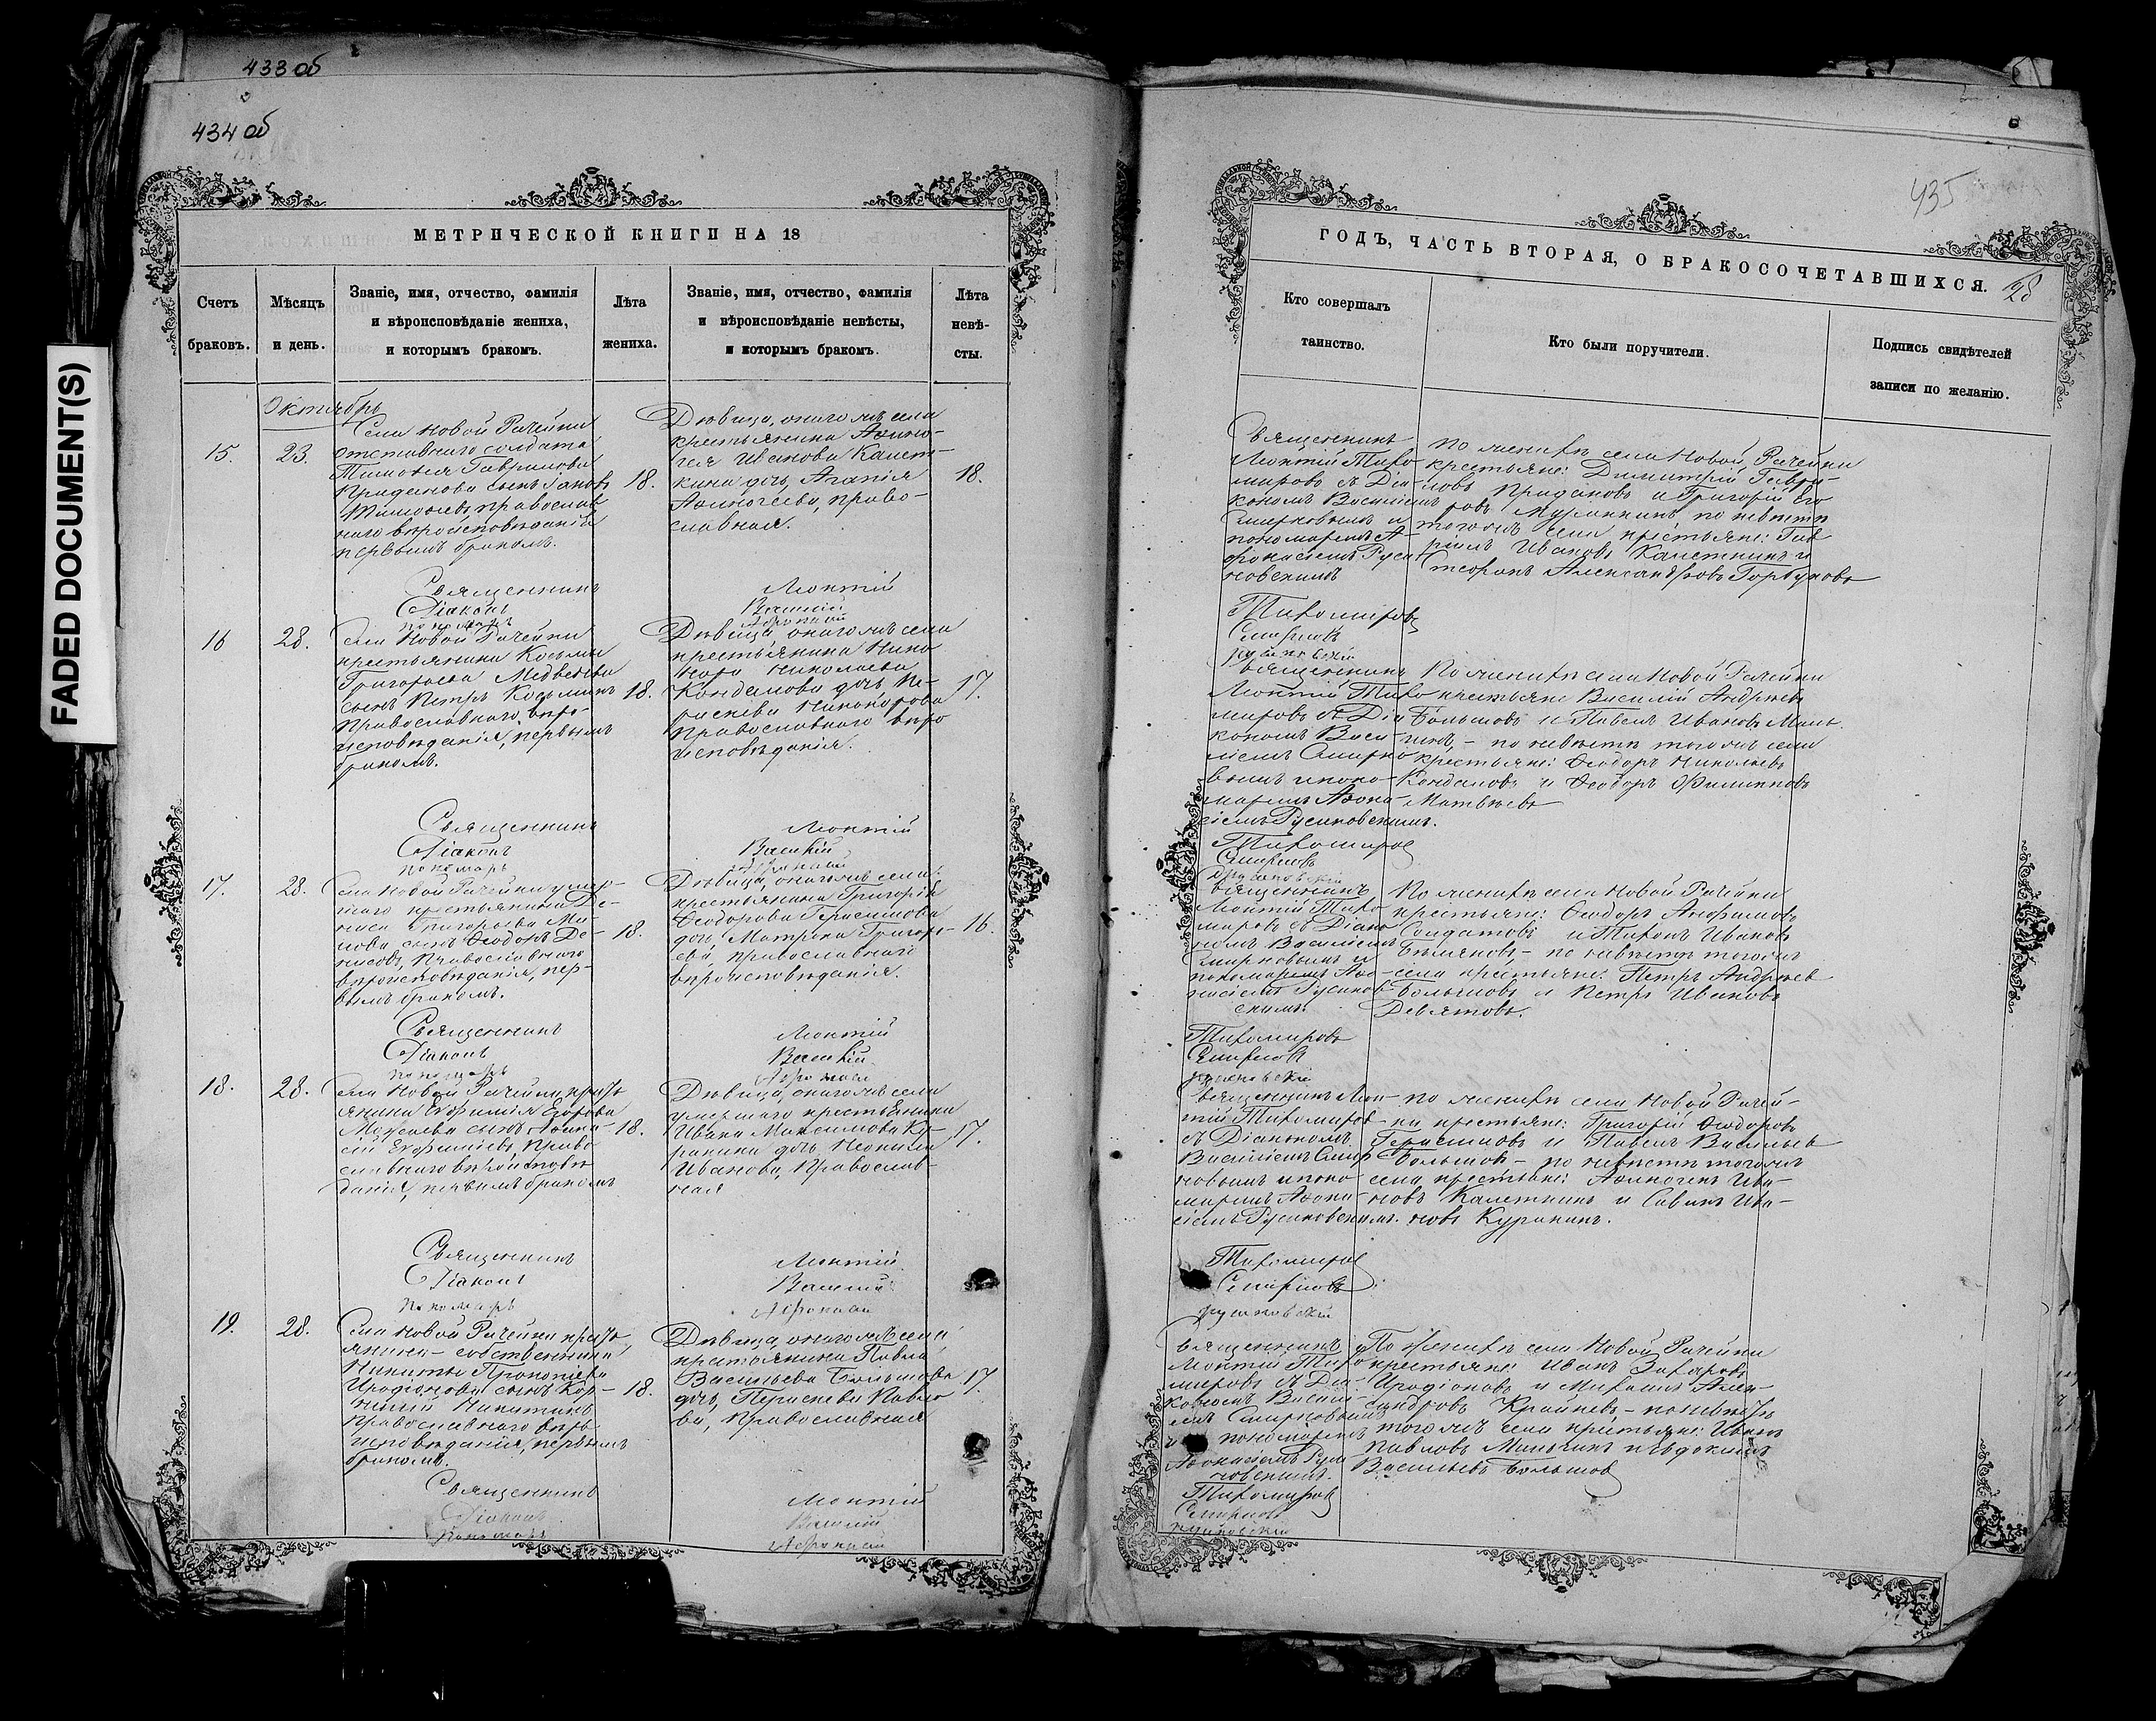 433 об
434 об
FADED DOCUMENT(S)
МЕТРИЧЕСКОЙ КНИГИ НА 18
Счетъ
браковъ.
Мѣсяцъ
и день.
Званіе, имя, отчество, фамилія
и вѣроисповѣданіе жениха,
и которымъ бракомъ.
Лѣта
жениха.
Званіе, имя, отчество, фамилія
и вѣроисповѣданіе невѣсты,
и которымъ бракомъ.
Лѣта
невѣ-
сты.
Октябрь
15.
23.
Села Новой Рачейки
отставнаго солдата
Тимофея Гаврилова
Приданова сынъ Іаковъ
Тимофеевъ, православ
наго вѣроисповѣданія
первымъ бракомъ.
18.
Дѣвица, онаго жъ села
крестьянина Афино-
гея Иванова Калет-
кина дочь, Агапія
Афиногеева, право-
славная.
18.
Священникъ Леонтій
Діаконъ Василій
пономарь Афонасій
16
28.
Села Новой Рачейки
крестьянина Косьмы
Григорьева Медведева
сынъ Петръ Козьминъ
Православнаго вѣро-
исповѣданія, первымъ
бракомъ.
18.
Дѣвица, онаго жъ села
крестьянина Нико
нора Николаева
Кондалова дочь Па-
раскева Никонорова
православнаго вѣро
исповѣданія.
17.
Священникъ Леонтій
Діаконъ Василій
пономарь Афонасій
17.
28.
Села Новой Рачейки умер-
шаго крестьянина Де-
ниса Григорьева Ми-
нова сынъ Феодоръ Де-
нисовъ, Православнаго
вѣроисповѣданія, пер-
вымъ бракомъ.
18.
Дѣвица, онаго жъ села
крестьянина Григорія
Феодорова Герасимова
дочь, Матрона Григорь-
ева, православнаго
вѣроисповѣданія.
16.
Священникъ Леонтій
Діаконъ Василій
пономарь Афонасій
18.
28.
Села Новой Рачейки кресть
янина Евфимія Егорова
сынъ Афана-
сій Евфиміевъ, Право
славнаго вѣроисповѣ
данія, первымъ бракомъ
18.
Дѣвица, онаго жъ села
умершаго крестьянина
Ивана Максимова Ку-
ракина дочь Неонила
Иванова, Православ-
ная
17.
Священникъ Леонтій
Діаконъ Василій
Пономарь Афонасій
19.
28.
Села Новой Рачейки кресть
янина-собственника
Никиты Прокопіева
Иродіонова сынъ Кор-
нилій Никитинъ
Православнаго вѣро-
исповѣданія, первымъ
бракомъ.
18.
Дѣвица, онаго жъ села
крестьянина Павла
Васильева Большова
дочь, Параскева Павло-
ва, Православная
17.
Священникъ Леонтій
Діаконъ Василій
Пономарь Афонасій
435
28
ГОДЪ, ЧАСТЬ ВТОРАЯ, О БРАКОСОЧЕТАВШИХСЯ.
Кто совершалъ
таинство.
Кто были поручители.
Подпись свидѣтелей
записи по желанію.
Священникъ
Леонтій Тихо-
мировъ съ Діа-
кономъ Василіемъ
Смирновымъ и
пономаремъ А-
фонасіемъ Руса-
новскимъ
По женихѣ села Новой Рачейки
крестьяне: Димитрій Гаври-
ловъ Придановъ и Григорій Его
ровъ по невѣстѣ
того жъ села крестьяне: Гав
ріилъ Ивановъ Калеткинъ и
Александровъ Горбуновъ
Тихомировъ
Смирновъ
Русановскій
Священникъ
Леонтій Тихо
мировъ съ Діа
кономъ Васи-
ліемъ Смирно
вымъ и поно-
маремъ Афона-
сіемъ Русановскимъ.
По женихѣ села Новой Рачейки
крестьяне Василій Андреевъ
Большовъ и Павелъ Ивановъ Мань-
кинъ, - по невѣстѣ того жъ села
крестьяне: Феодоръ Николаевъ
Кондаловъ и Феодоръ Филипповъ
Матвеевъ
Тихомировъ
Смирновъ
Русановскій
Священникъ
Леонтій Тихо
мировъ съ Діако
номъ Василіемъ
Смирновымъ и
пономаремъ Афо-
насіемъ Русанов-
скимъ.
По женихѣ села Новой Рачейки
крестьяне: Феодоръ Анфимовъ
Солдатовъ и Тихонъ Ивановъ
Беляковъ, - по невѣстѣ того жъ
села крестьяне: Петръ Андреевъ
Большовъ и Петръ Ивановъ
Девятовъ.
Тихомировъ
Смирновъ
Русановскій
Священникъ Леон-
тій Тихомировъ
съ Діакономъ
Василіемъ Смир
новымъ и поно
маремъ Афона-
сіемъ Русановскимъ.
по женихѣ села Новой Рачей-
ки крестьяне: Григорій Феодоровъ
Герасимовъ и Павелъ Васильевъ
Большовъ - по невѣстѣ того жъ
села крестьяне: Афиногенъ Ива-
новъ Калеткинъ и Савинъ Ива-
новъ Куракинъ.
Тихомировъ
Смирновъ
Русановскій
Священникъ
Леонтій Тихо
мировъ съ Діа-
кономъ Василі-
емъ Смирновымъ
и пономаремъ
Афонасіемъ Руса
новскимъ.
По женихѣ села Новой Рачейки
крестьяне: Иванъ Захаровъ
Иродіоновъ и Михаилъ Алек-
сандровъ Крайневъ, - по невѣстѣ
того жъ села крестьяне: Иванъ
Павловъ Манькинъ и Евдокимъ
Васильевъ Большовъ
Тихомировъ
Смирновъ
Русановскій